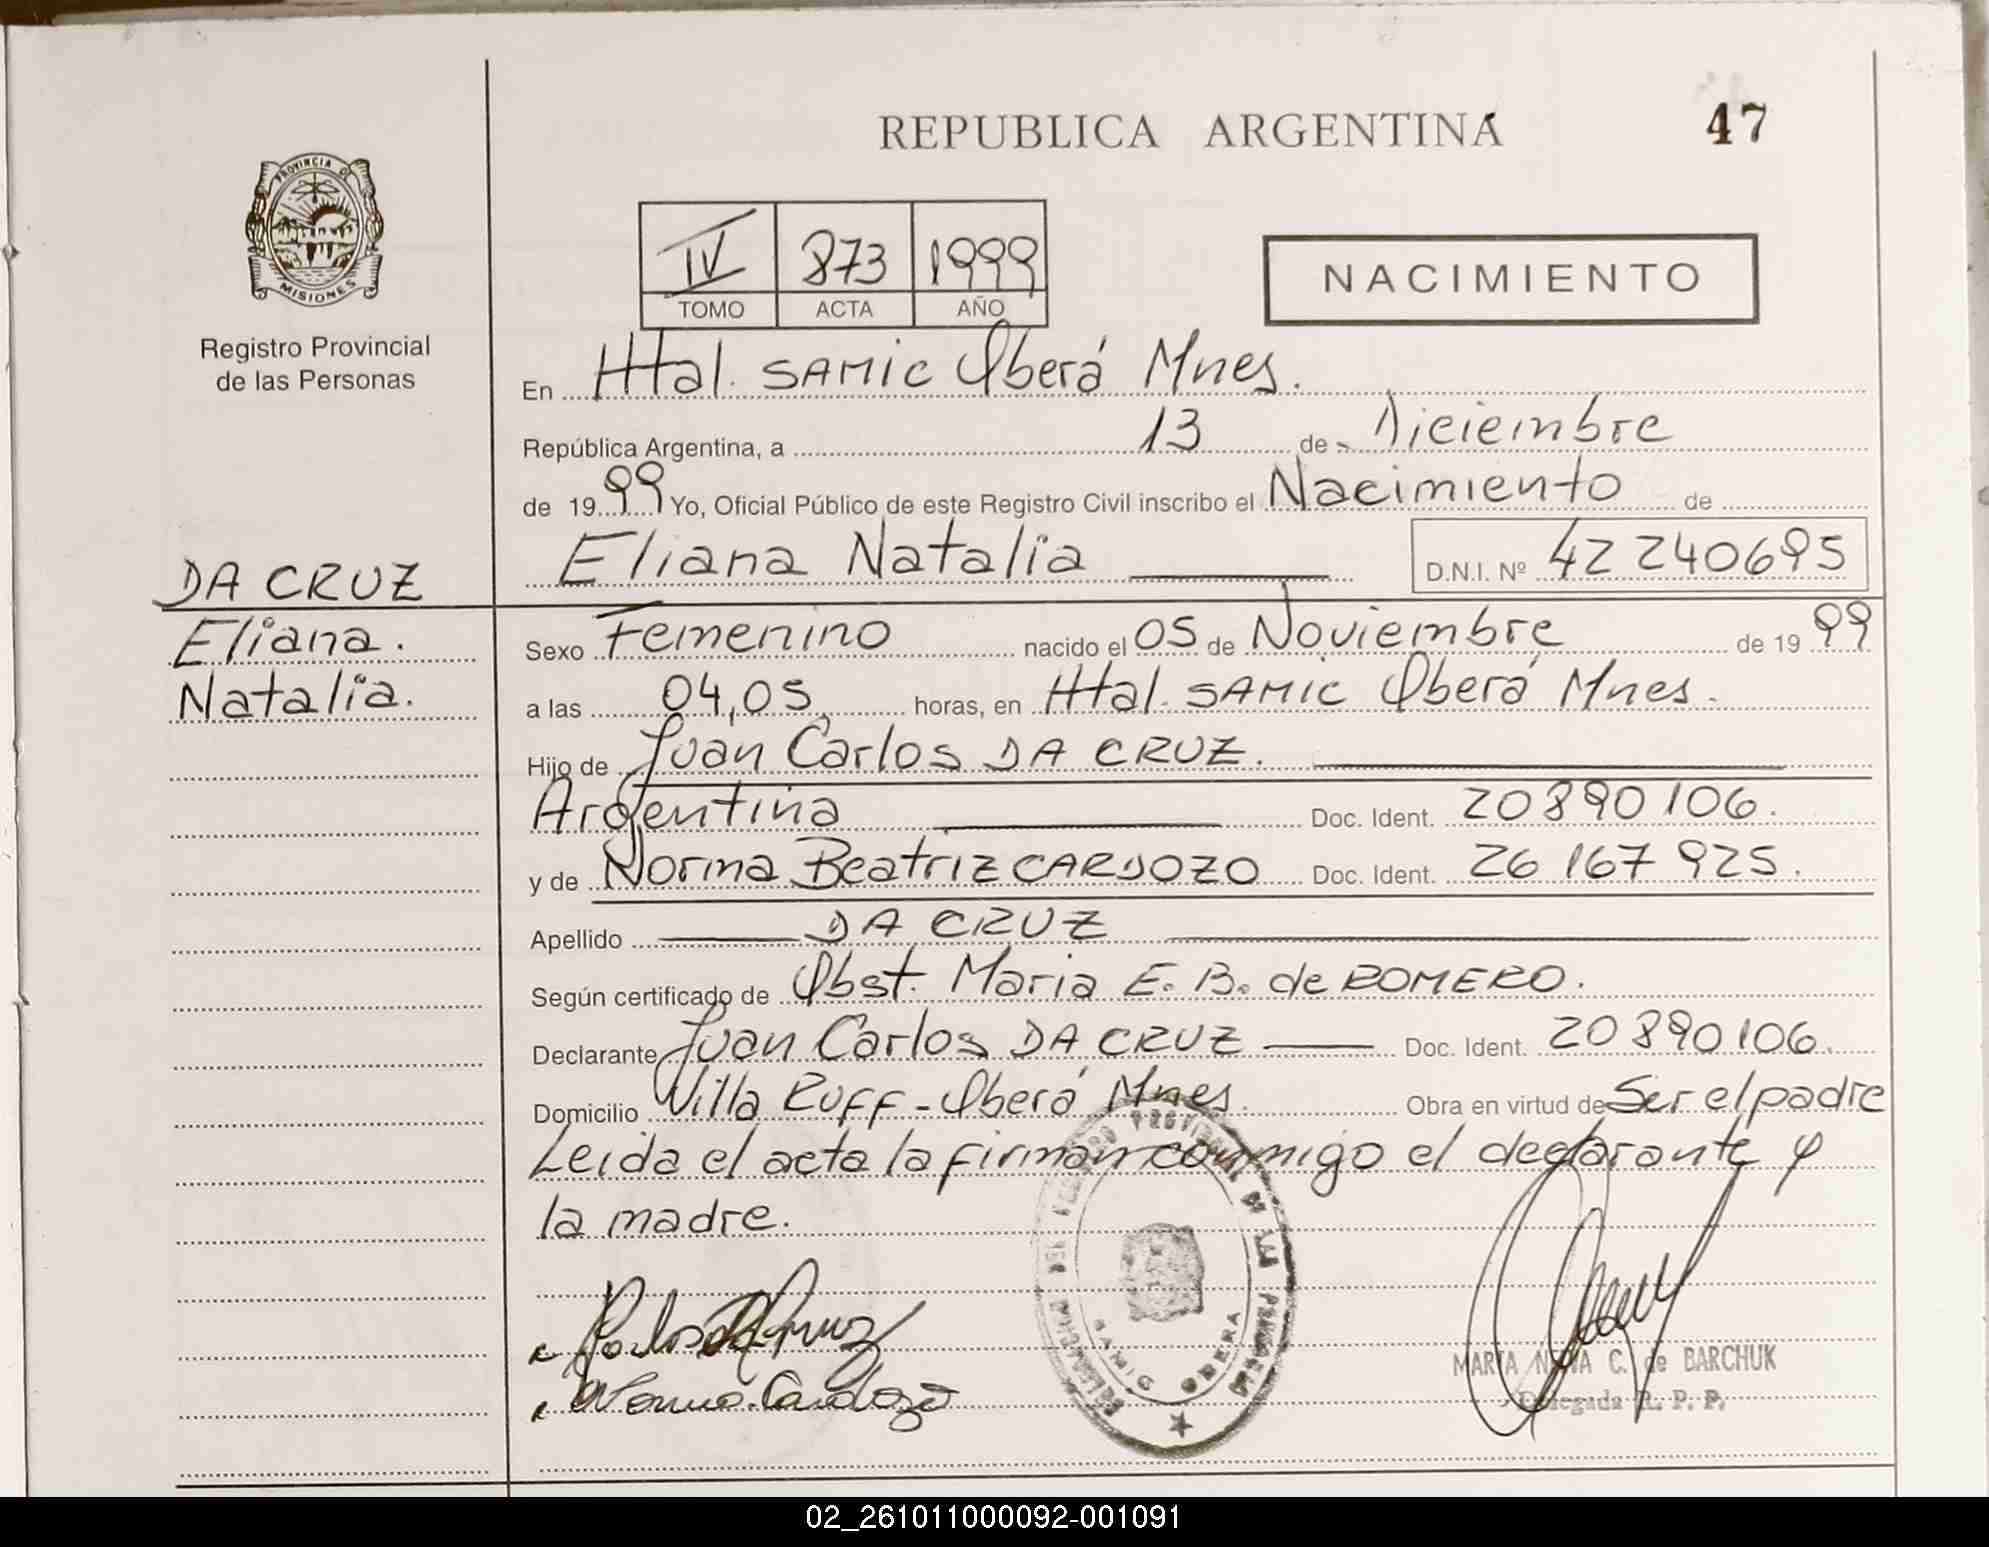 REPUBLICA ARGENTINA
47
PROVINCIA DE
MISIONES
Registro Provincial
de las Personas
IV 873 1999
TOMO ACTA AÑO
NACIMIENTO
En Htal. SAMIC Oberá Mnes.
República Argentina, a 13 de Diciembre
de 1999 Yo, Oficial Público de este Registro Civil inscribo el Nacimiento de
Eliana Natalia D.N.I. Nº 42 240695
DA CRUZ
Eliana.
Natalia.
Sexo Femenino nacido el 05 de Noviembre de 1999
a las 04,05 horas, en Htal. SAMIC Oberá Mnes.
Hijo de Juan Carlos DA CRUZ.
Argentina Doc. Ident. 20890106.
y de Norma Beatriz CARDOZO Doc. Ident. 26 167 925.
Apellido DA CRUZ
Según certificado de Obst. Maria E. B. de ROMERO.
Declarante Juan Carlos DA CRUZ Doc. Ident. 20890106.
Domicilio Villa Ruff - Oberá Mnes. Obra en virtud de Ser el padre
Leida el acta la firman conmigo el declarante y
la madre.
Norma Cardozo
SAMIC OBERA
MARIA C. de BARCHUK
Delegada R. P. P.
02_261011000092-001091